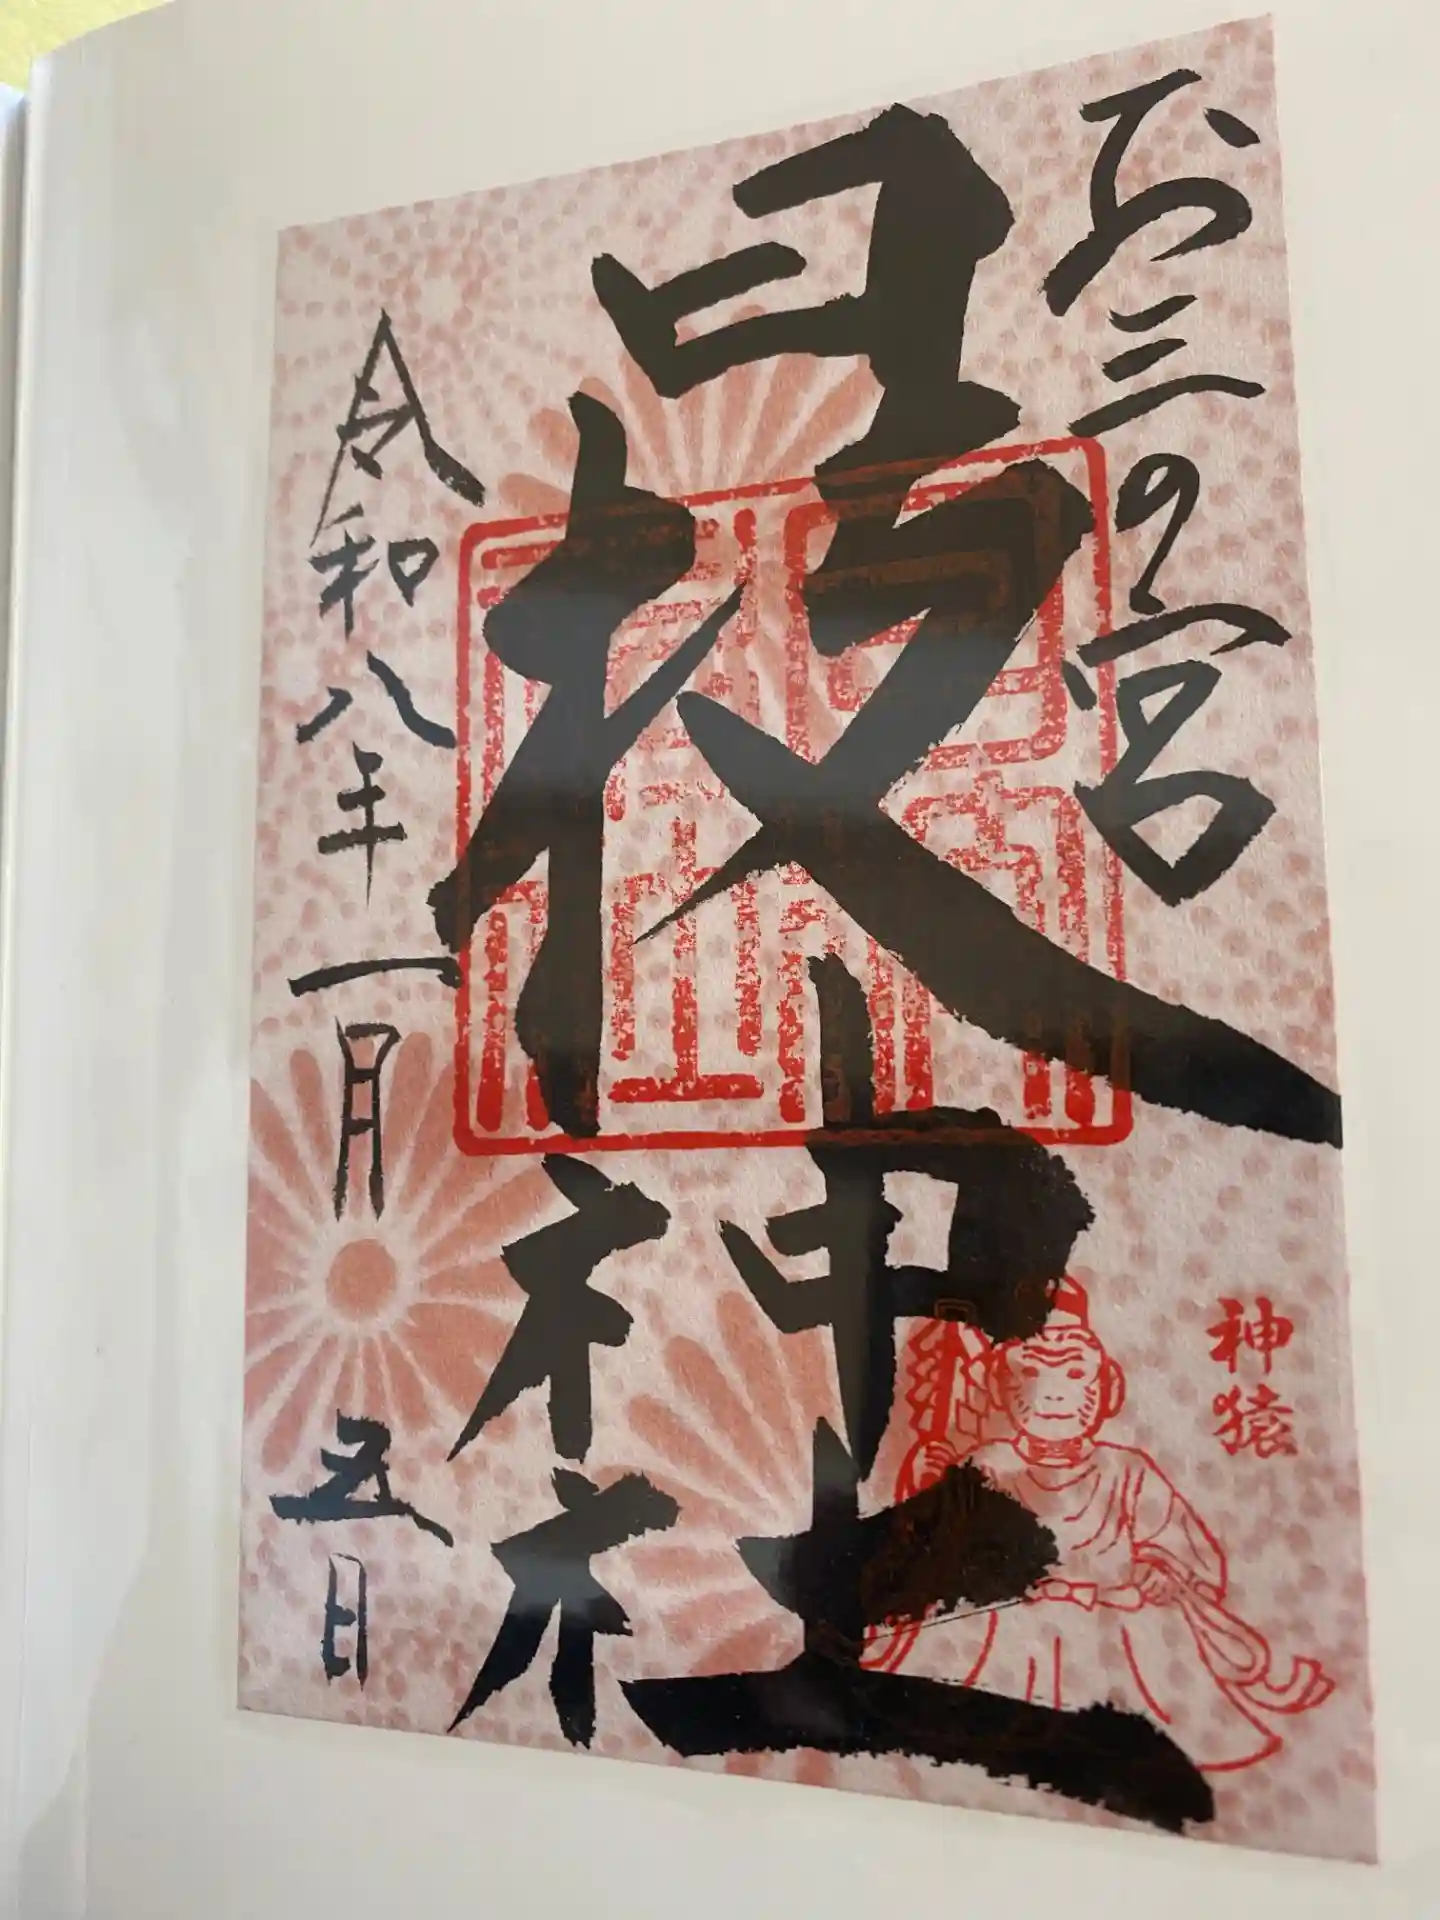 お三の宮
日枝神社
神猿
令和八年一月五日